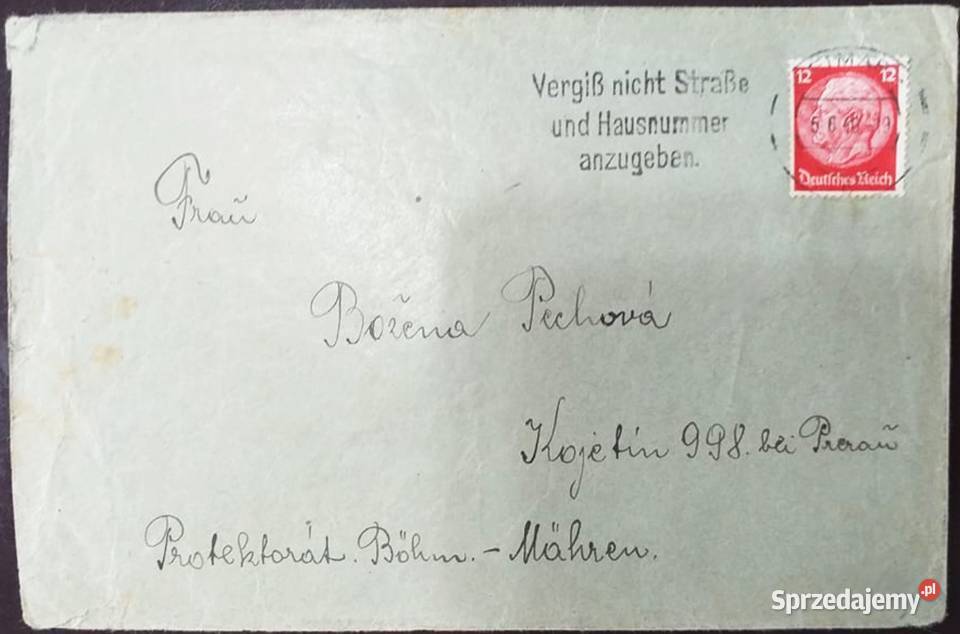 Vergiß nicht Straße
und Hausnummer
anzugeben.
12 12
Deutsches Reich
Frau
Božena Pechová
Kojetín 998. bei Prerau
Protektorát. Böhm. - Mähren.
Sprzedajemy.pl